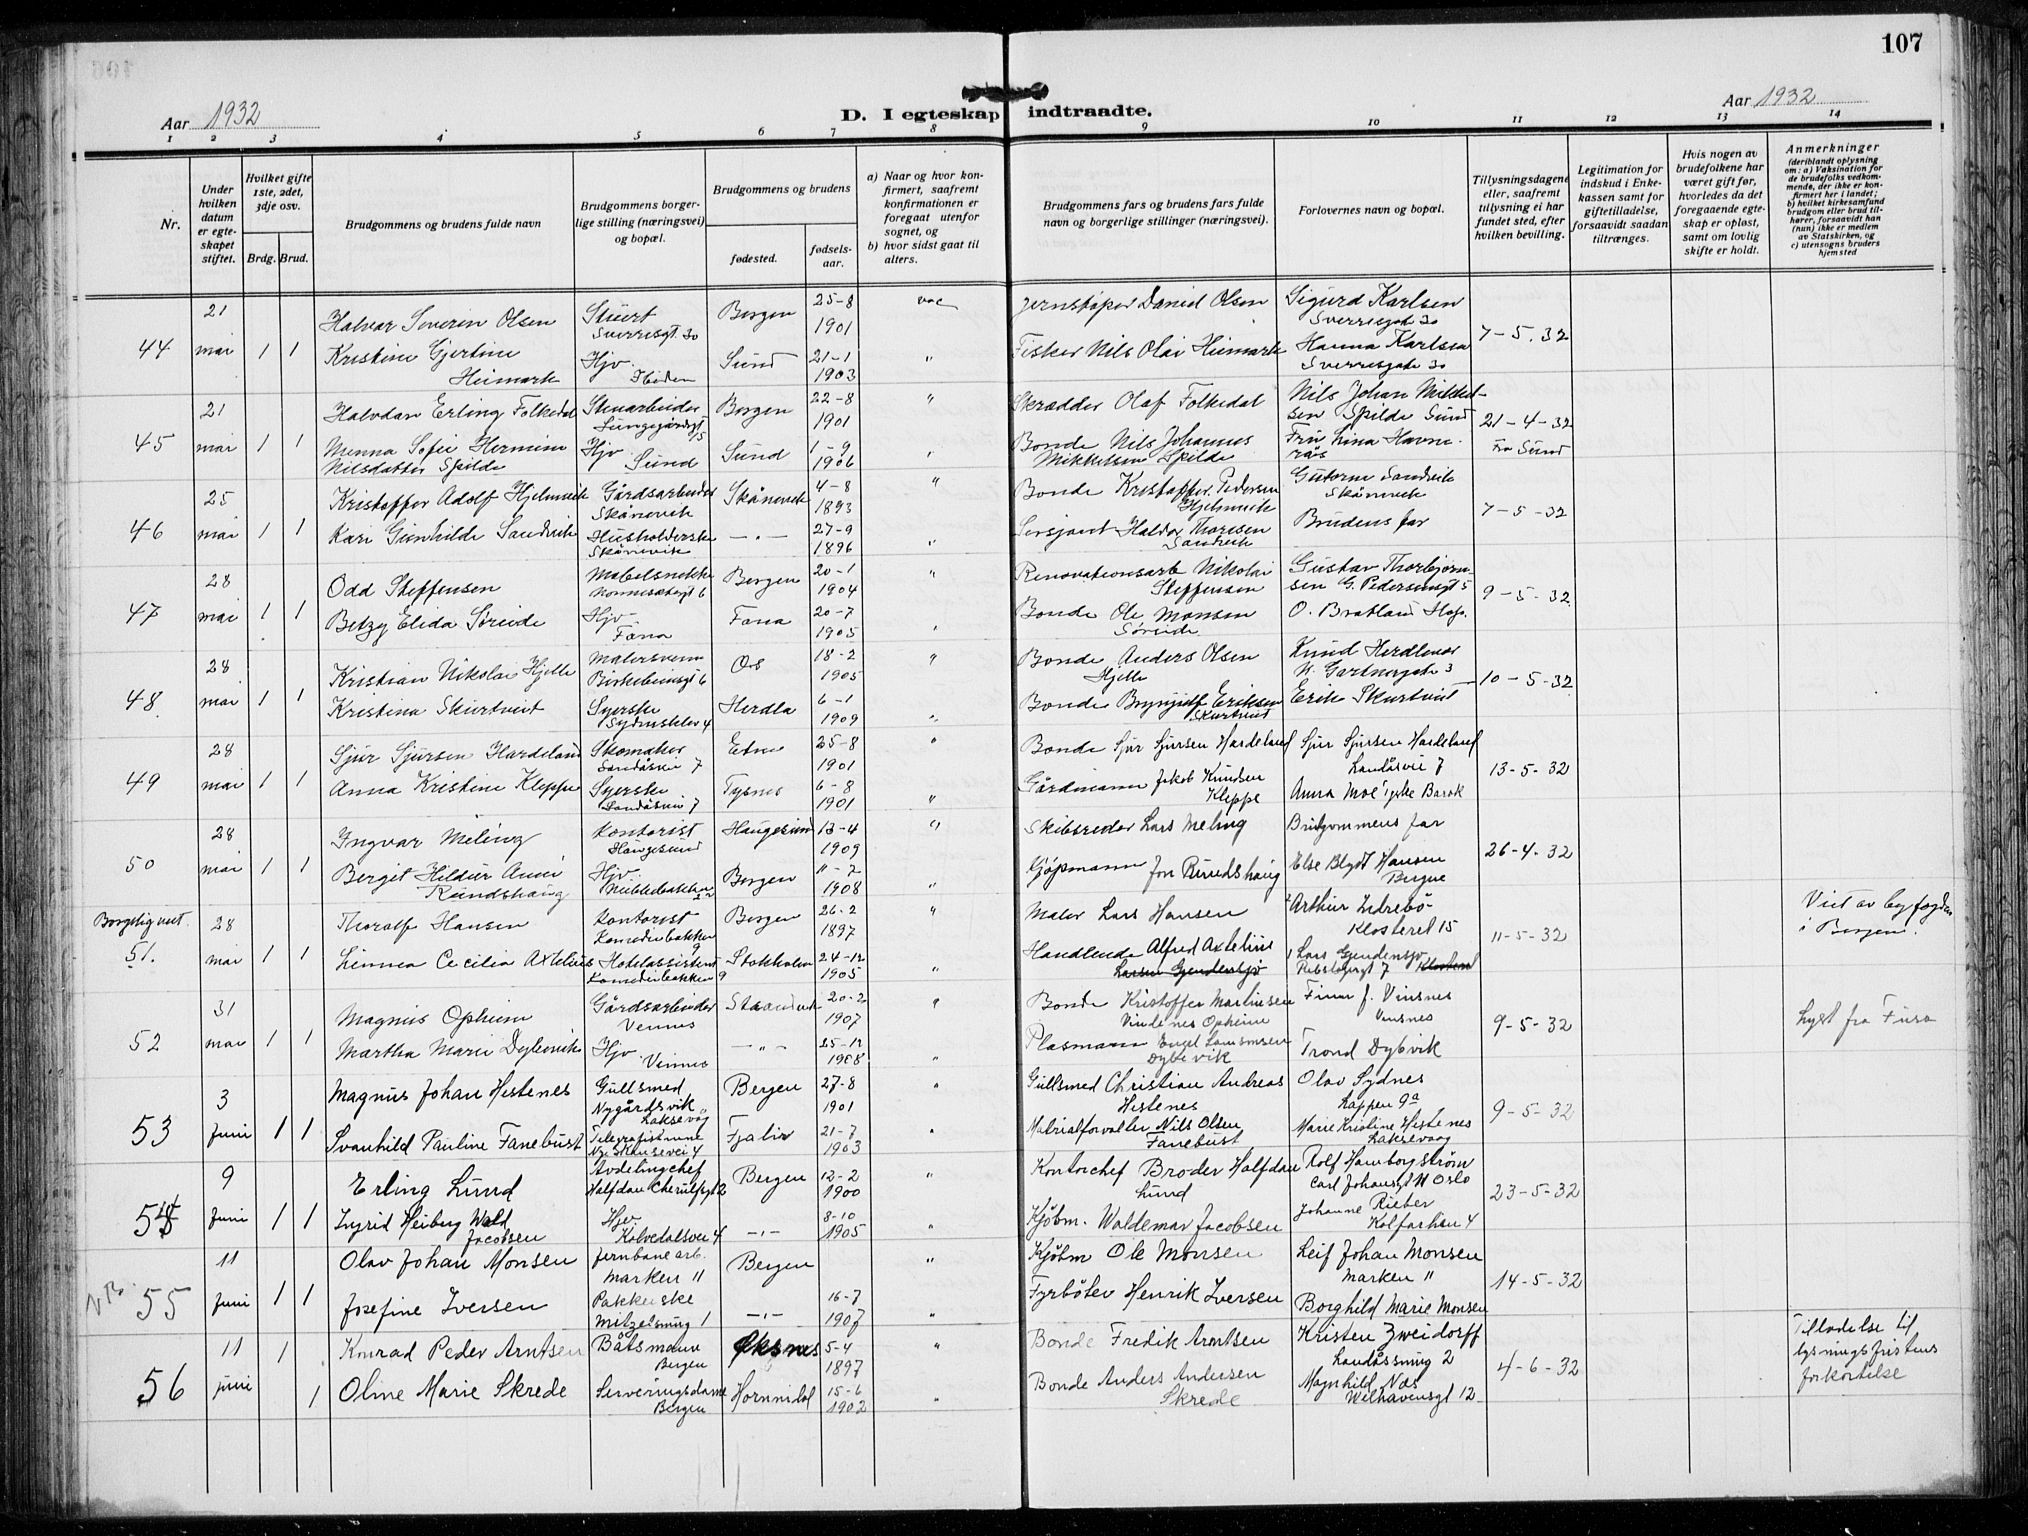 107
Aar 1932
D. I egteskap indtraadte.
Aar 1932
1 2 3 4 5 6 7 8 9 10 11 12 13 14
Nr.
Under hvilken datum er egteskapet stiftet.
Hvilket gifte 1ste, 2det, 3dje osv.
Brdg. Brud.
Brudgommens og brudens fulde navn
Brudgommens borgerlige stilling (næringsvei) og bopæl.
Brudgommens og brudens
fødested.
fødselsaar.
a) Naar og hvor konfirmert, saafremt konfirmationen er foregaat utenfor sognet, og
b) hvor sidst gaat til alters.
Brudgommens fars og brudens fars fulde navn og borgerlige stillinger (næringsvei).
Forlovernes navn og bopæl.
Tillysningsdagene eller, saafremt tillysning ei har fundet sted, efter hvilken bevilling.
Legitimation for indskud i Enkekassen samt for giftetilladelse, forsaavidt saadan tiltrænges.
Hvis nogen av brudefolkene har været gift før, hvorledes da det foregaaende egteskap er opløst, samt om lovlig skifte er holdt.
Anmerkninger
(deriblandt oplysning om: a) Vaksination for de brudefolks vedkommende, der ikke er konfirmert her i landet; b) hvilket kirkesamfund brudgom eller brud tilhører, forsaavidt han (hun) ikke er medlem av Statskirken, og c) utensogns bruders hjemsted
44 21 mai 1 1
Halvar Severin Olsen Stuert Sverresgt. 30 Bergen 25-8 1901 vac Jernstøper Daniel Olsen Sigurd Karlsen Sverresgate 30 7-5.32
Kristine Gjertine Heimark Hjv. Sund 21-1 1903 " Fisker Nils Olai Heimark Hanna Karlsen Sverresgate 30
45 21 mai 1 1
Halvdan Erling Folkedal Stenarbeider Bergen 22-8 1901 " Skrædder Olaf Folkedal Nils Johan Mikkelsen Spilde Sund 21-4-32
Menna Sofie Hermine Nilsdatter Spilde Hjv. Sund Sund 1-9 1906 " Bonde Nils Johannes Mikkelsen Spilde Fru Lina Fra Sund
46 25 mai 1 1
Kristoffer Adolf Hjelmvik Gårdsarbeider Skånevik Skånevik 4-8 1893 " Bonde Kristoffer Pedersen Hjelmvik Gutorm Sandvik Skånevik 7-5-32
Kari Gunhilde Sandvik Husholderske Skånevik -"- 27-9 1896 " Sersjant Haldor Thoresen Sandvik Brudens far
47 28 mai 1 1
Odd Steffensen Møbelsnekker Nonnesætergt 6 Bergen 20-1 1904 " Renovationsarb Nikolai Steffensen Gustav Thorbjørnsen G. Pedersensgt 5 9-5-32.
Betzy Elida Søreide Hjv Fana Fana 20-7 1905 " Bonde Ole Monsen Søreide O. Bratland Hop.
48 28 mai 1 1
Kristian Nikolai Hjelle Malersvenn Birkebeinsgt 6 Os 18-2 1905 " Bonde Anders Olsen Hjelle Knud Herdlevær N. Gartnergate 3 10-5-32
Kristina Skurtveit Syerske Sydnesklev 4 Herdla 6-1 1909 " Bonde Brynjulf Eriksen Skurtveit Erik Skurtveit
49 28 mai 1 1
Sjur Sjursen Hardeland Skomaker Landåsvei 7 Etne 25-8 1901 " Bonde Sjur Sjursen Hardeland Sjur Sjursen Hardeland Landåsvei 7 13-5-32
Anna Kristine Kleppe Syerske Landåsvei 7 Tysnes 6-8 1901 " Gårdmann Jakob Knudsen Kleppe Anna Moe
50 28 mai 1 1
Ingvar Meling Kontorist Haugesund Haugesund 13-4 1909 " Skibsreder Lars Meling Brudgommens far 26-4-32
Bergit Hildur Rundshaug Hjv. Bergen 11-2 1908 " Kjøpmann Jon Rundshaug Else Blydt Hansen Bergen
Borgelig viet.
51. 28 mai 1 1
Thoralf Hansen Kontorist Komediebakken 9 Bergen 26-2 1897 " Maler Lars Hansen Arthur Klosteret 15 11-5-32 Viet av byfogden i Bergen.
Linnea Cecilia Axtelius Hotelassistent Komediebakken 9 Stokholm 24-12 1905 " Handlende Alfred Axtelius Larsen Gjendensjø Lars Gjendensjø 7 Klosteret
52 31 mai 1 1
Magnus Opheim Gårdsarbeider Vennes Strandvik 20-2 1907 " Bonde Kristoffer Martinsen Vindenes Opheim Finn J. Vinsnes Vinsnes 9-5-32 Lyst fra Fusa
Martha Marie Dybevik Hjv. Vinnes -"- 25-12 1908 " Plasmann Engel Dybevik Trond Dybvik
53 3 Juni 1 1
Magnus Johan Hestenes Gullsmed Nygårdsvik Laksevåg Bergen 27-8 1901 " Gullsmed Christian Andreas Hestenes Olav Sydnes Lappen 9a 9-5-32
Svanhild Pauline Fanebust Telegrafistinne Nye Skansevei 4 Fjaler 21-7 1903 " Matrialforvalter Nils Olsen Fanebust Marie Kristine Hestenes Laksevaag
54 9 Juni 1 1
Erling Lund Avdelingchef Halfdan Cherulfsgt 2 Bergen 12-2 1900 " Kontorchef Broder Halfdan Lund Rolf Hamborgstrøm Carl Johansgt Oslo 23-5-32
Ingrid Heiberg Wold Jacobsen Hjv. Kalvedalsvei 4 -"- 8-10 1905 " Kjøbm. Waldemar Jacobsen Johanne Rieber Kalfarlien 4
NB. 55 11 Juni 1 1
Olav Johan Monsen Jernbanearb. Marken 11 Bergen " Kjøbm Ole Monsen Leif Johan Monsen Marken 11 14-5-32
Josefine Iversen Pakkerske Mitzelsmug 1 -"- 16-7 1907 " Fyrbøter Henrik Iversen Borghild Marie Monsen
56 11 juni 1 1
Konrad Peder Arntsen Båtsmann Bergen Øksnes 5-4 1897 " Bonde Fredik Arntsen Kristen Zweidorff Landåssmug 2 4-6-32 Tilladelse til lysningsfristens forkortelse
Oline Marie Skrede Serveringsdame Bergen Hornindal 15-6 1902 " Bonde Anders Andersen Skrede Magnhild Næs Welhavensgt 12